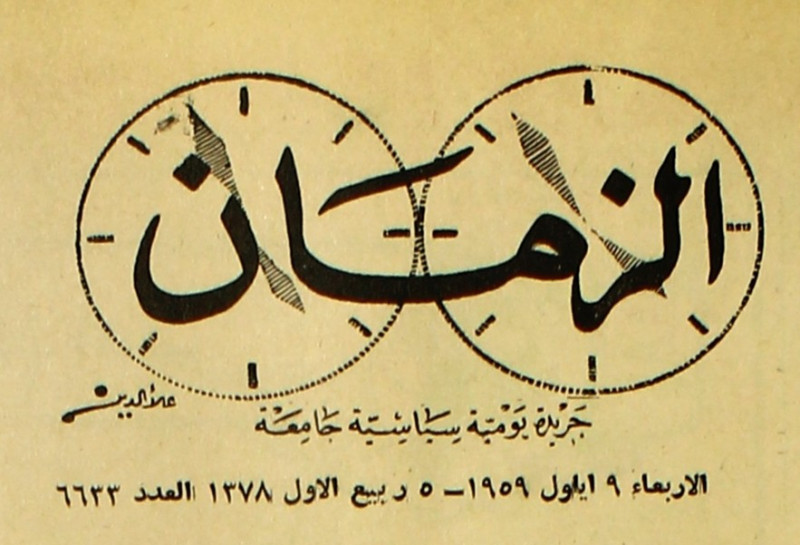 الزمان
علاء الدين
جَريدة يَوميّة سيَاسيّة جَامعَة
الاربعاء ٩ ايلول ١٩٥٩ـ ٥ ربيع الاول ١٣٧٨ العدد ٦٦٣٣